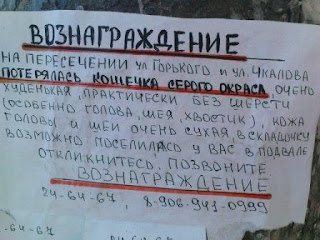 ВОЗНАГРАЖДЕНИЕ
НА ПЕРЕСЕЧЕНИИ УЛ ГОРЬКОГО И УЛ. ЧКАЛОВА
ПОТЕРЯЛАСЬ КОШЕЧКА СЕРОГО ОКРАСА ОЧЕНЬ
ХУДЕНЬКАЯ, ПРАКТИЧЕСКИ БЕЗ ШЕРСТИ
(ОСОБЕННО ГОЛОВА, ШЕЯ, ХВОСТИК), КОЖА
ГОЛОВЫ И ШЕИ ОЧЕНЬ СУХАЯ, В СКЛАДОЧКУ
ВОЗМОЖНО ПОСЕЛИЛАСЬ У ВАС В ПОДВАЛЕ
ОТКЛИКНИТЕСЬ, ПОЗВОНИТЕ
ВОЗНАГРАЖДЕНИЕ
24-64-67, 8-906-941-0999